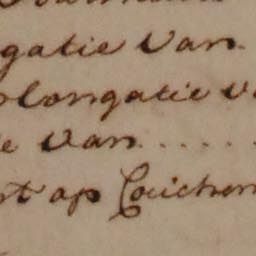 gatie van
longatie v
e van .....
rt op Couchen